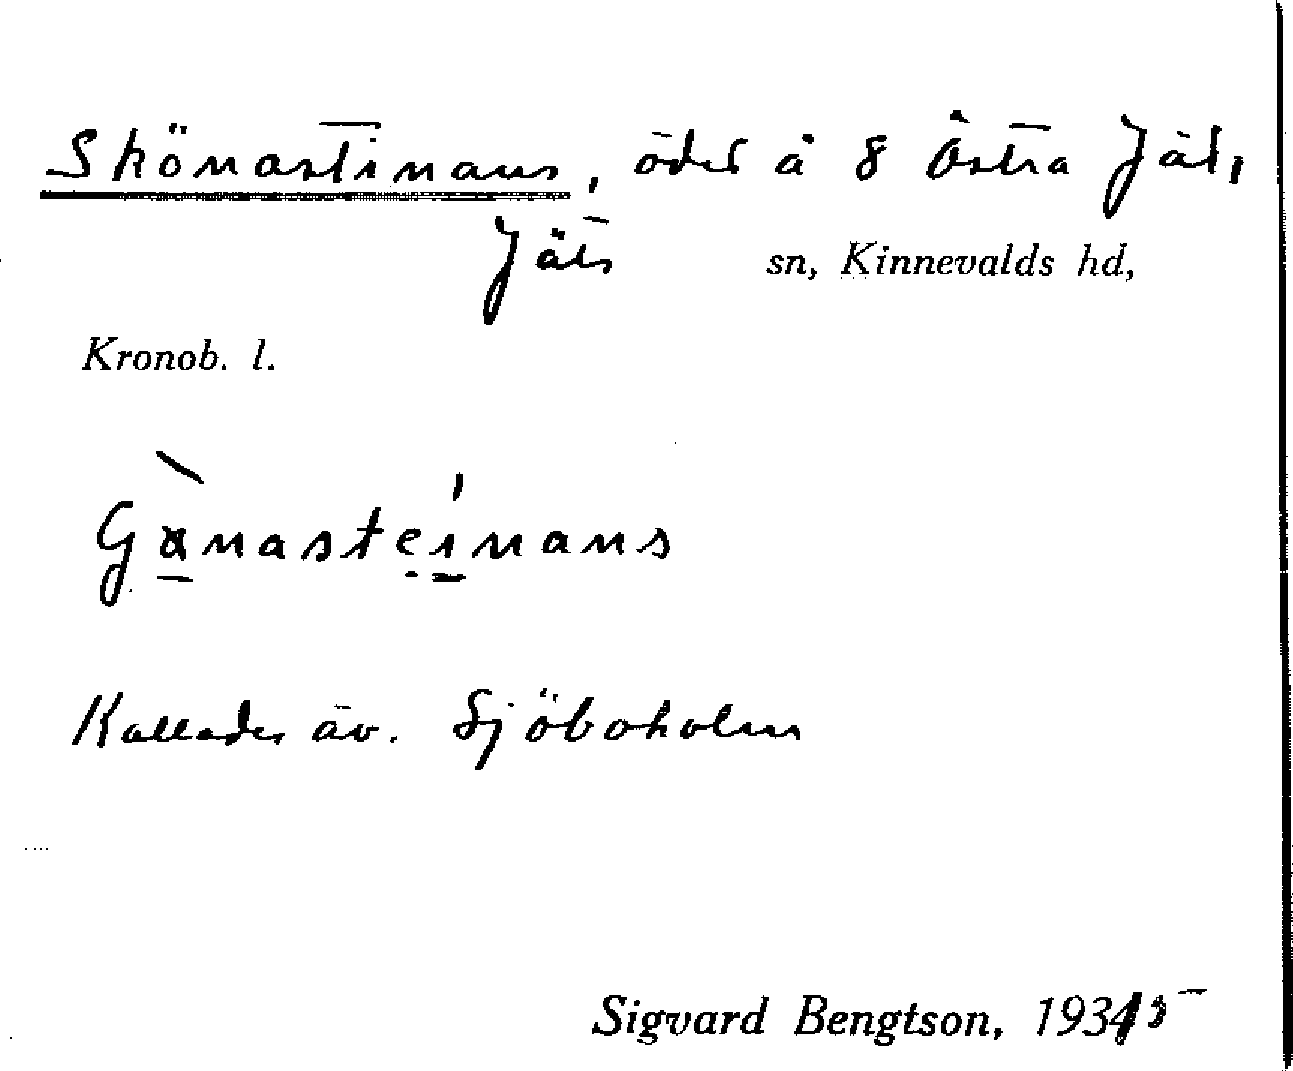 Skönastinans, ödel å 8 Östra Jät,
Jäts sn, Kinnevalds hd,
Kronob. l.
Gänasteinans
Kallades äv. Sjöboholm
Sigvard Bengtson, 1935